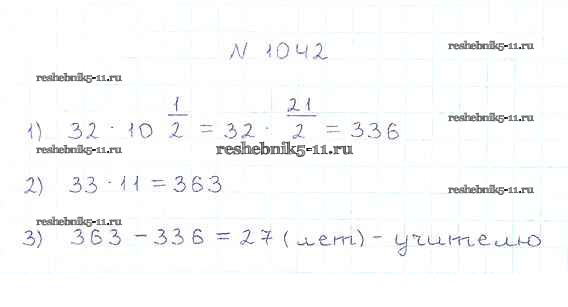 N 1042
reshebnik5-11.ru
reshebnik5-11.ru
1) 32 · 10 1/2 = 32 · 21/2 = 336
reshebnik5-11.ru
reshebnik5-11.ru
reshebnik5-11.ru
2) 33 · 11 = 363
reshebnik5-11.ru
reshebnik5-11.ru
3) 363 - 336 = 27 (лет) - учителю